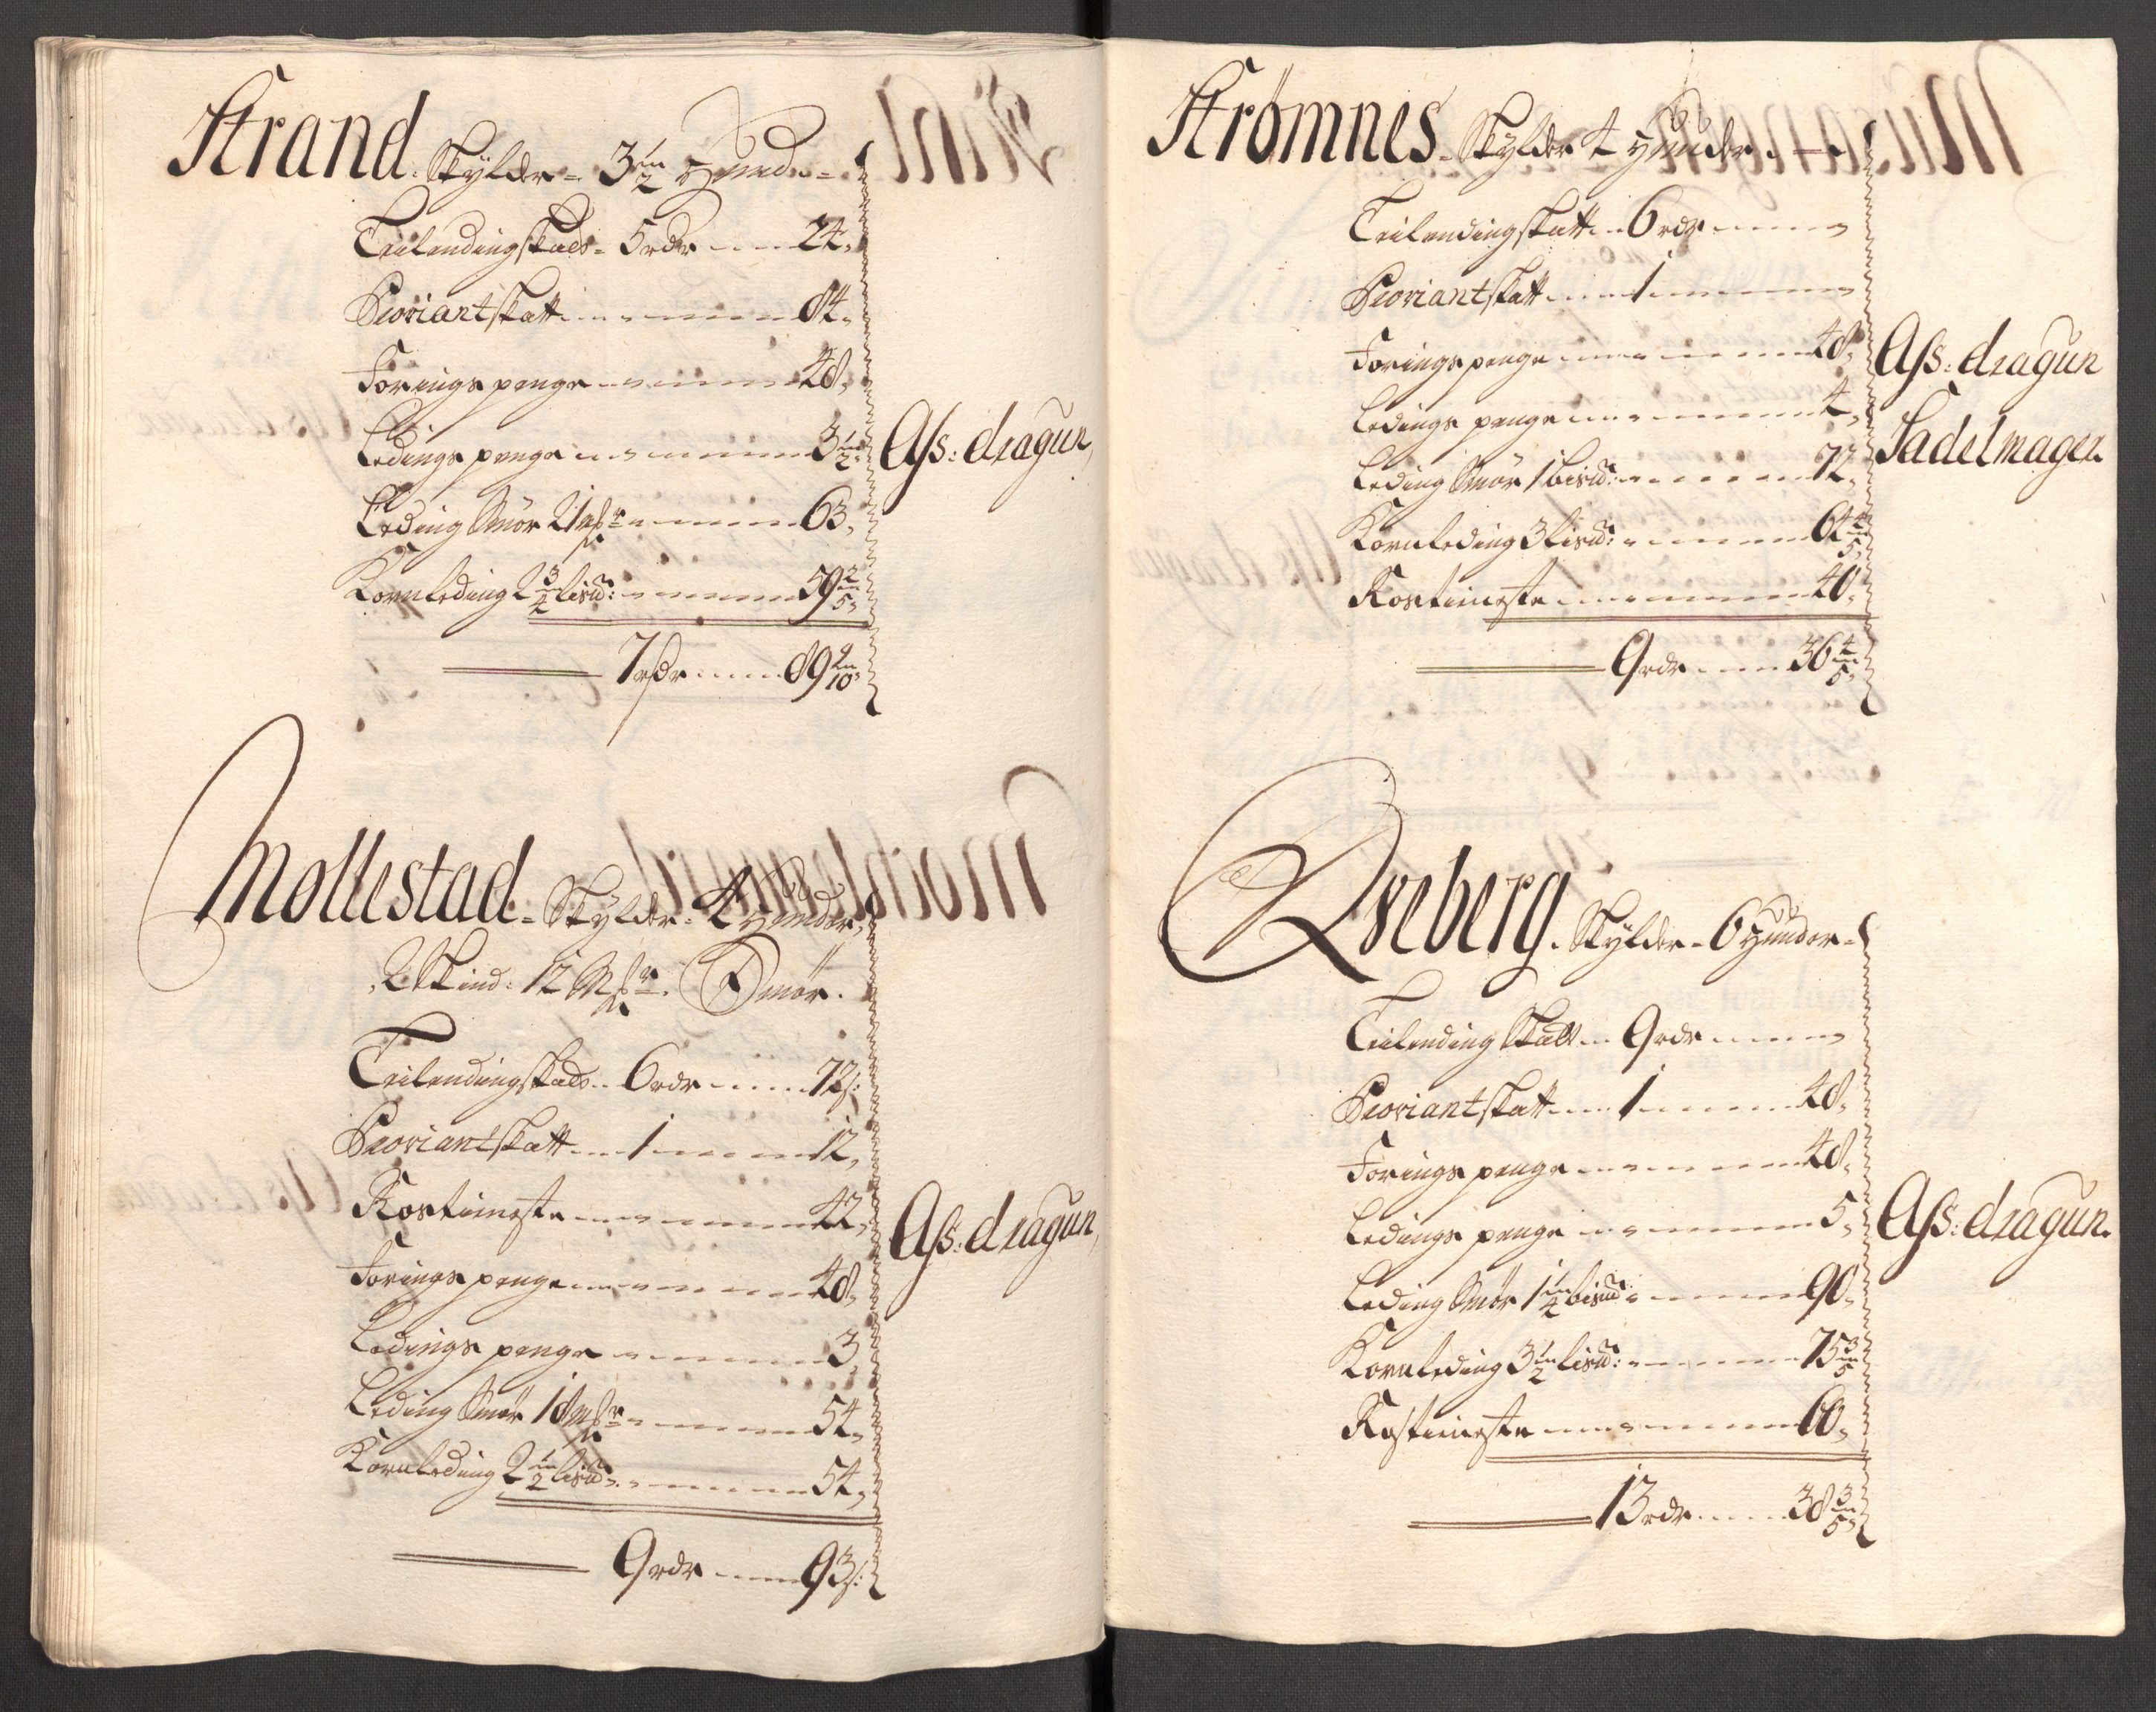 Strand. Skylder = 3 1/2 Hunder =
Leilendingskads = 5 rdr ---- 24,
Proviantskatt ------- 84,
Foringspenge ------- 48,
Ledings penge ------- 3 1/2,
Leding Smör 21 mkr ------ 63,
Kornleding 2 3/4 lispd: ------ 59 2/5,
7 rdr ---- 89 9/10,
Ass: dragun,
Mollestad = Skylder = 4 Hunder,
2 Skind: 12 Mkr. Smör.
Leilendingskads -- 6 rdr ---- 72 s:
Proviantskatt --- 1 ------ 12,
Rostieneste ------- 42,
Foringspenge ------- 48,
Ledings penge ------- 3,
Leding Smör 18 mkr ------ 54,
Kornleding 2 1/2 lispd: ------ 54,
9 rdr ---- 93 s:
Ass: dragun,
Strömnes. Skylder 4 Hunder. --
Leilendingskatt -- 6 rdr ------
Proviantskatt --- 1 -------
Foringspenge ------- 48,
Ledings penge ------- 4,
Leding Smör 1 bispd: ------ 72,
Kornleding 3 lispd: ------ 64 4/5,
Rostieneste ------- 40,
9 rdr ---- 36 4/5,
Ass: dragun
Sadelmager.
Qveberg. Skylder = 6 Hunder =
Leilending Skatt -- 9 rdr ------
Proviantskatt --- 1 ------ 48,
Foringspenge ------- 48,
Ledings penge ------- 5,
Leding Smör 1 1/4 bispd ------ 90,
Kornleding 3 1/2 lispd: ------ 75 3/5
Rostieneste ------- 60,
13 rdr ---- 38 3/5,
Ass: dragun.